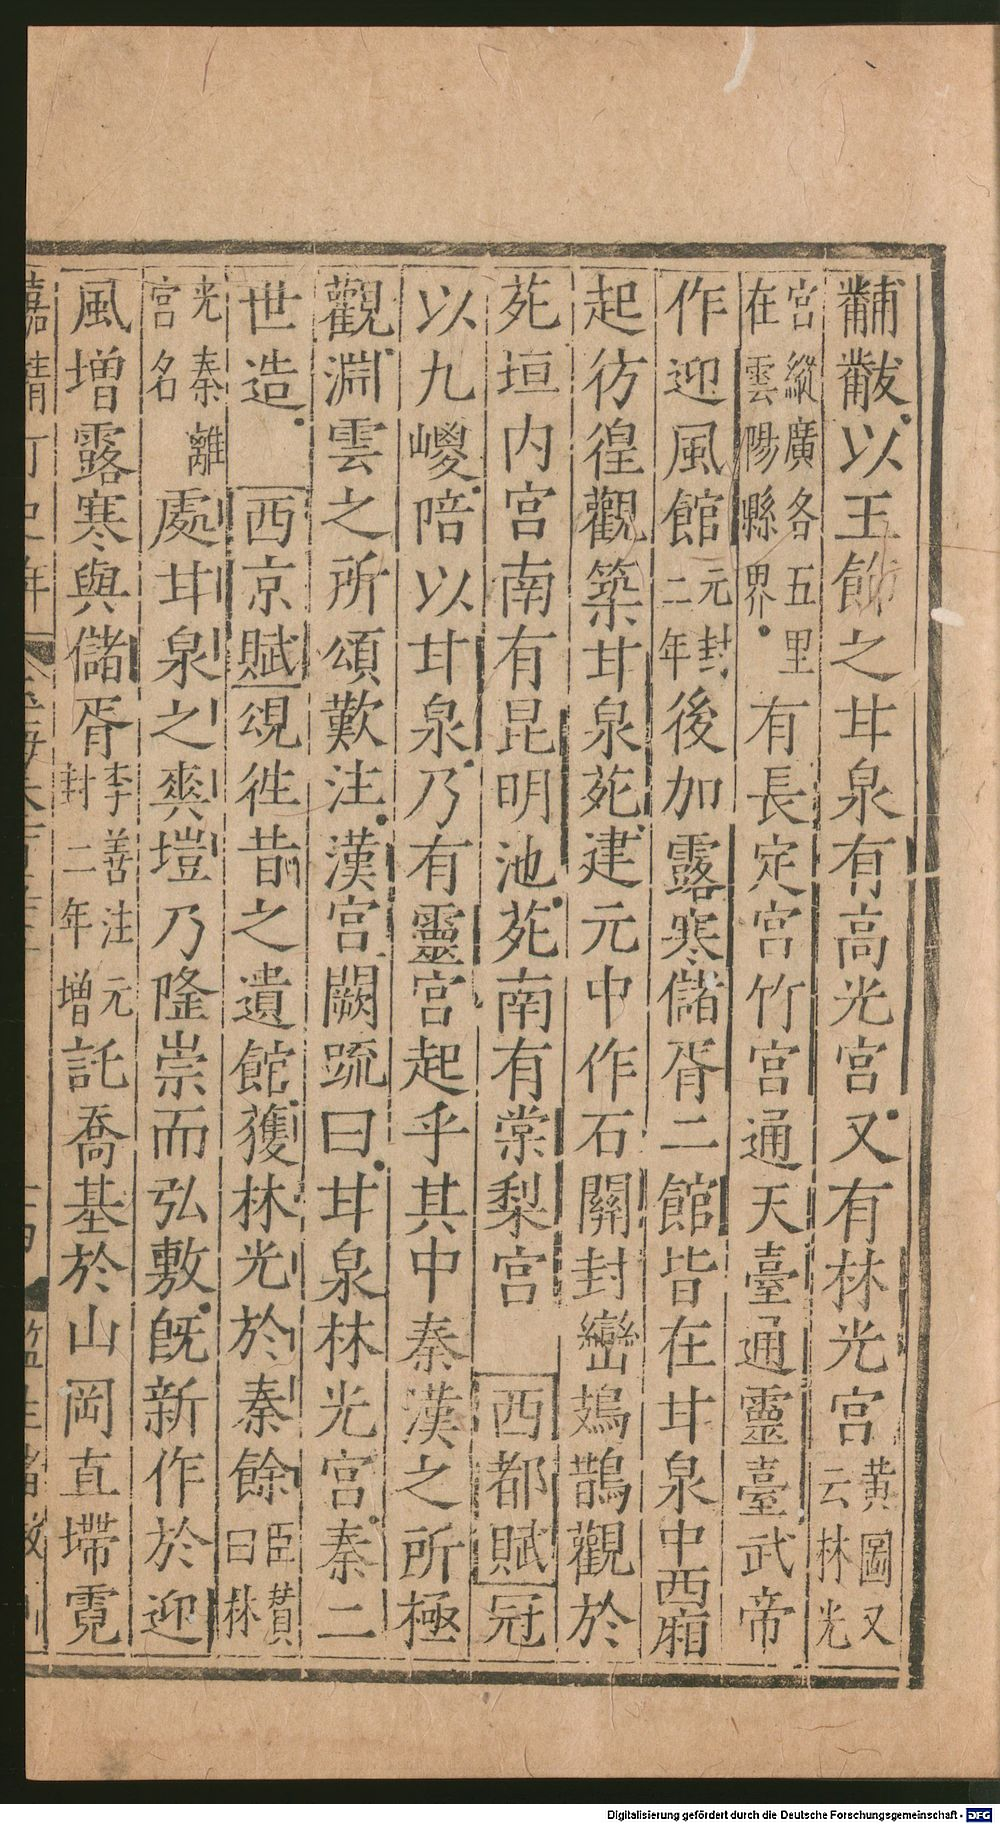 黼黻以玉飾之甘泉有高光宮又有林光宮黃圖又云林光
宮縱廣各五里在雲陽縣界有長定宮竹宮通天臺通靈臺武帝
作迎風館元封二年後加露寒儲胥二館皆在甘泉中西廂
起彷徨觀築甘泉苑建元中作石關封巒鳷鵲觀於
苑垣内宮南有昆明池苑南有棠梨宮 西都賦冠
以九嵕陪以甘泉乃有靈宮起乎其中秦漢之所極
觀淵雲之所頌歎注漢宮闕疏曰甘泉林光宮秦二
世造 西京賦覛徃昔之遺館獲林光於秦餘臣瓚曰林
光秦離宮名處甘泉之爽塏乃隆崇而弘敷旣新作於迎
風增露寒與儲胥李善注元封二年增託喬基於山岡直墆霓
Digitalisierung gefördert durch die Deutsche Forschungsgemeinschaft - DFG